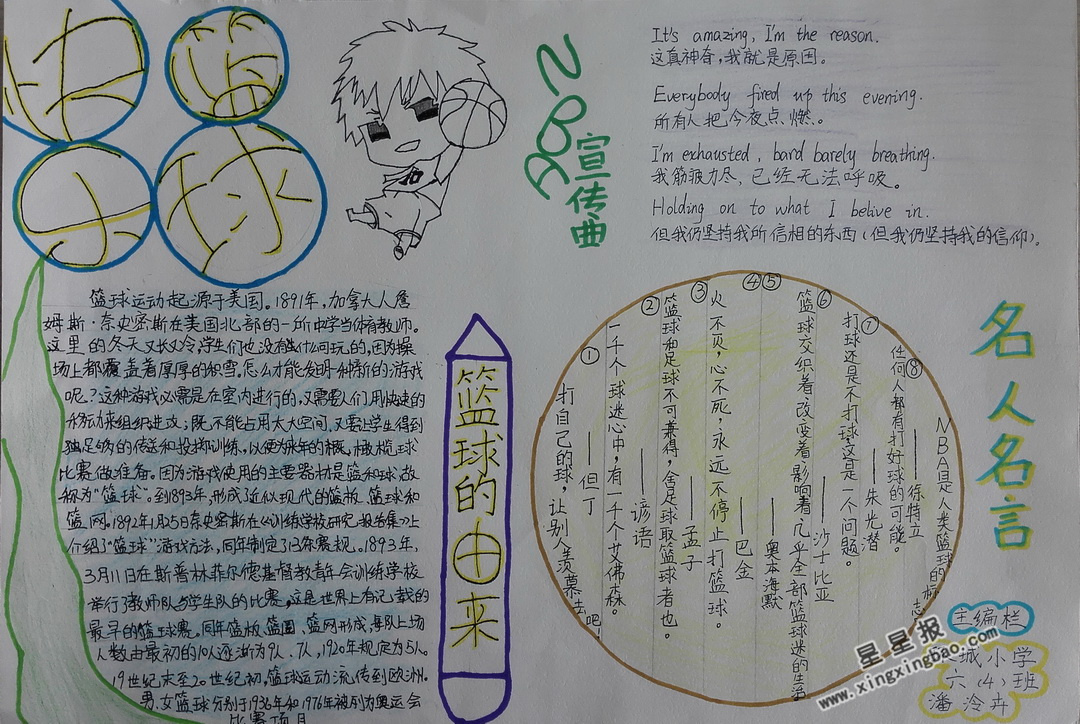 快乐
篮球
NBA
宣传曲
It's amazing, I'm the reason.
这真神奇,我就是原因。
Everybody fired up this evening.
所有人把今夜点燃。
I'm exhausted, bard barely breathing.
我筋疲力尽,已经无法呼吸。
Holding on to what I belive in.
但我仍坚持我所信相的东西(但我仍坚持我的信仰)。
篮球运动起源于美国。1891年,加拿大人詹
姆斯·奈史密斯在美国北部的一所中学当体育教师。
这里的冬天又长又冷,学生们也没有些什么可玩的,因为操
场上都覆盖着厚厚的积雪。怎么才能发明一种新的游戏
呢?这种游戏必需是在室内进行的,又需要人们用快速的
移动来组织进攻;既不能占用太大空间,又要让学生得到
独足够的传送和投掷训练,以便为来年的概,橄榄球
比赛做准备。因为游戏使用的主要器材是篮和球,故
称为“篮球”。到1893年,形成了近似现代的篮板、篮球和
篮网。1892年1月25日奈史密斯在《训练学校研究报告集》上
介绍了“篮球”游戏方法,同年制定了13条赛规。1893年,
3月11日在斯普林菲尔德基督教青年会训练学校
举行了教师队与学生队的比赛。这是世界上有记载的
最早的篮球赛。同年篮板、篮圈、篮网形成,每队上场
人数由最初的10人逐渐为9人、7人,1920年规定为5人。
19世纪末至20世纪初,篮球运动流传到欧洲。
男、女篮球分别于1936年和1976年被列为奥运会
比赛项目
篮球的由来
①
打自己的球,让别人羡慕去吧!
——但丁
②
一千个球迷心中,有一千个艾佛森。
——谚语
③
篮球和足球不可兼得,舍足球取篮球者也。
——孟子
④
火不灭,心不死,永远不停止打篮球。
——巴金
⑤
——奥本海默
⑥
篮球交织着、改变着、影响着几乎全部篮球迷的生活
——沙士比亚
⑦
打球还是不打球,这是一个问题。
——朱光潜
⑧
任何人都有打好球的可能。
——徐特立
NBA是人类篮球的标志
名人名言
主编栏
城小学
六(4)班
潘泠卉
星星报
www.xingxingbao.com